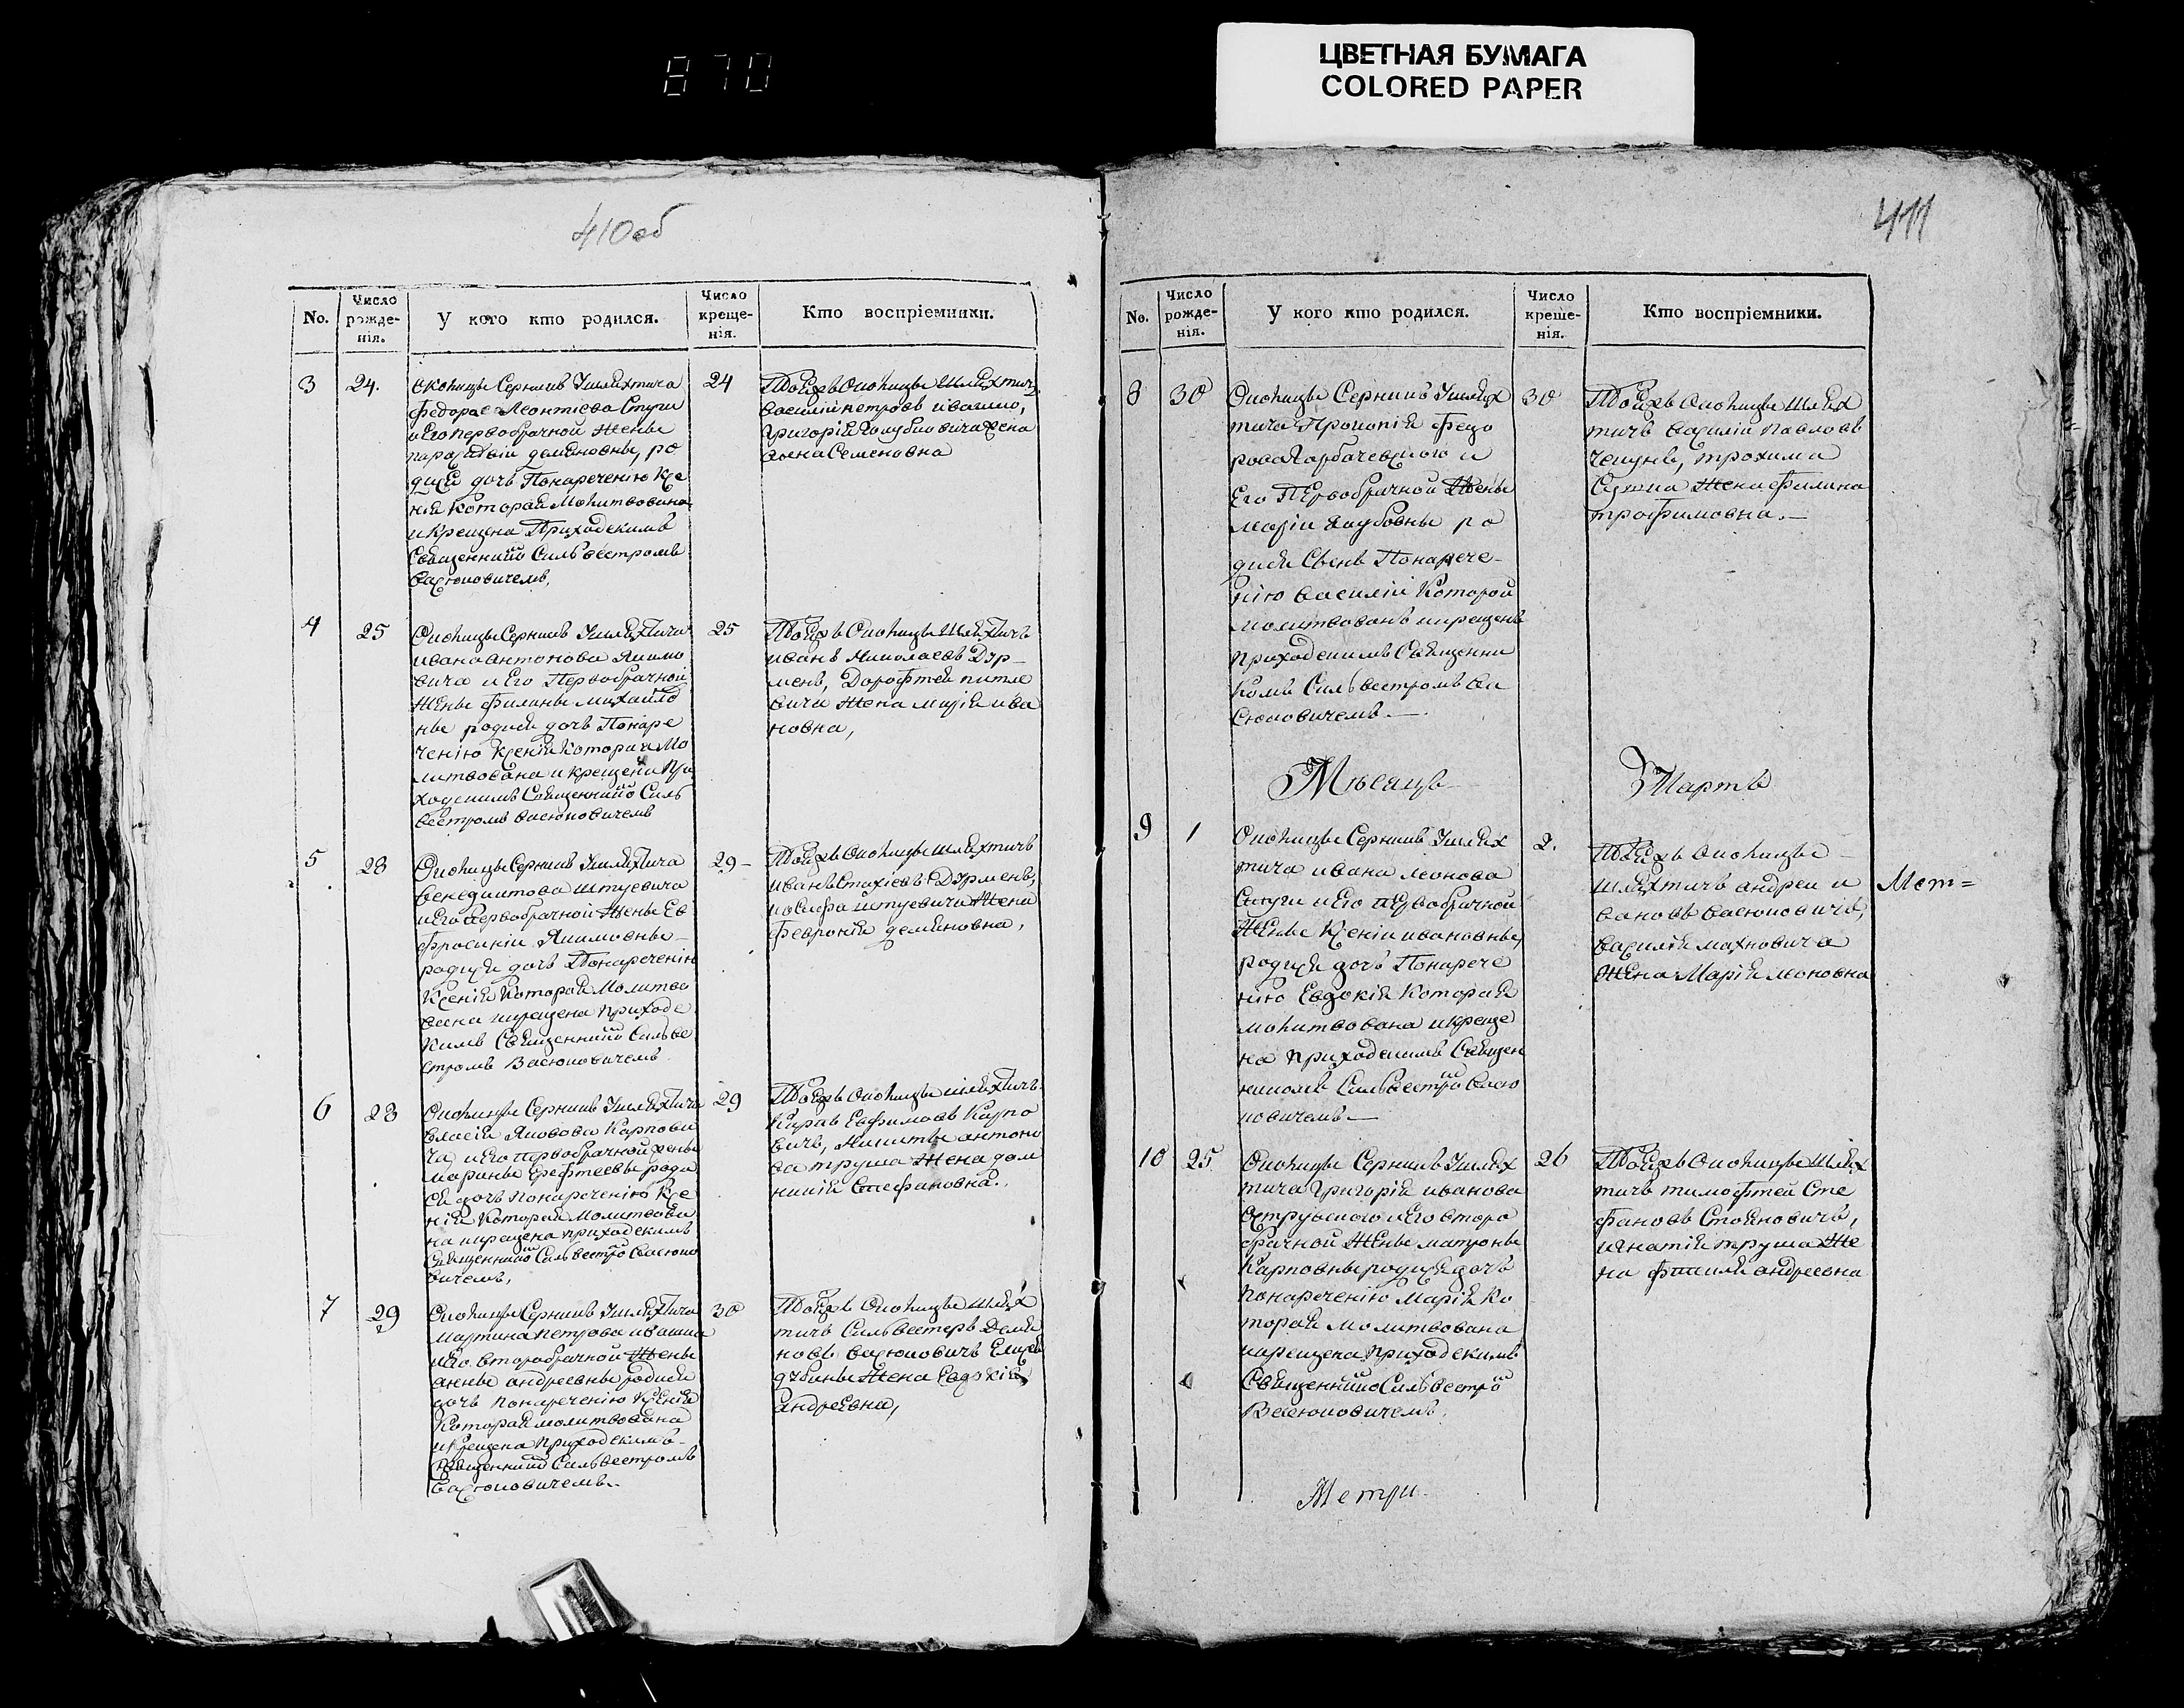 ЦВЕТНАЯ БУМАГА
COLORED PAPER
870
410об
No.
Число рожде-нія.
У кого кто родился.
Число креще-нія.
Кто воспріемники.
3 24. околицы Серникъ У шляхтича 24
Федора Леонтіева Стуги
и его первобрачной жены
параскѣи демяновны, ро
дися дочь Понаречению Ксе
нія Которая Молитвована
и крещена Приходскимъ
Священнико Сильвестромъ
Васюковичемъ,
Тоежъ Околицы шляхтичъ
василій петровъ ивашко,
Григорія Голубновича жена
анна Семеновна
4 25 Околицы Серникъ У шляхтича 25
ивана антонова Якимо
вича и Его Первобрачной
жены филины михайло
вны родися дочь Понаре
ченію Ксенія Которая Мо
литвована и крещена При
ходскимъ Священнико Силь
вестромъ васюковичемъ
Тоежъ Околицы шляхтичъ
иванъ Николаевъ Дор-
мень, Дорофтея питке
вича жена марія ива
новна,
5 28 Околицы Серникъ У шляхтича 29
бенедиктова
и его первобрачной жены Ев
фросиніи Якимовны
родися дочь Понаречению
Ксенія Которая Молитво
вана и крещена Приходс
кимъ Священнико Сильве
стромъ Васюковичемъ
Тоежъ Околицы шляхтичъ
иванъ Стахіевъ Дормень,
иосифа жена
Февронія демяновна,
6 28 Околицы Серникъ У шляхтича 29
Власія Яковова Карпови
ча, и его первобрачной жены
марины Ерефтеевы роди
ся дочь понаречению Ксе
нія Которая Молитвова
на и крещена приходскимъ
Священнико Сильвестро васюко
вичемъ,
Тоежъ Околицы шляхтичъ
Евфимовъ Карпо
вичъ, Никиты антоно
ва труша жена дом
никія Стефановна.
7 29 Околицы Серникъ У шляхтича 30
мартина петрова ивашка
и его второбрачной жены
анны андреевны родися
дочь понаречению Ксенія
Которая молитвована
и крещена приходскимъ
Священнико Сильвестромъ
васюковичемъ.
Тоежъ Околицы шлях
тичъ Сильвестеръ Демя
новъ васюковичъ
жена Евдокія
андреевна,
411
No.
Число рожде-нія.
У кого кто родился.
Число креше-нія.
Кто воспріемники.
8 30 Околицы Серникъ У шлях 30
тича Прокопія федо
рова Горбачевского и
Его Первобрачной жены
маріи Якубовны ро
дися Сынъ Понарече-
нію василій Которой
молитвованъ и крещенъ
приходскимъ Священни
комъ Сильвестромъ Ва
сюковичемъ.
Тоежъ Околицы шлях
тичъ василій павловъ
трохима
жена филина
трофимовна.
Мѣсяцъ Мартъ
9 1 Околицы Серникъ У шлях 2.
тича ивана леонова
Стуги и Его первобрачной
жены Ксеніи ивановны,
родися дочь Понарече
нію Евдокія Которая
молитвована и креще
на приходскимъ Священ
никомъ Сильвестро васю
ковичемъ.
Тоежъ Околицы
шляхтичъ андреи и
вановъ васюковичъ,
василія махновича
жена Марія леоновна
Мет=
10 25 Околицы Серникъ У шлях 26
тича Григорія иванова
Острувского и его второ
брачной жены матроны
Карповны родися дочь
понаречению Марія Ко
торая молитвована
и крещена приходскимъ
Священнико Сильвестро
Васюковичемъ.
Тоежъ Околицы шлях
тичъ тимофтей Сте
фановъ Стояновичъ,
игнатія труша же
на андреевна
Метри.